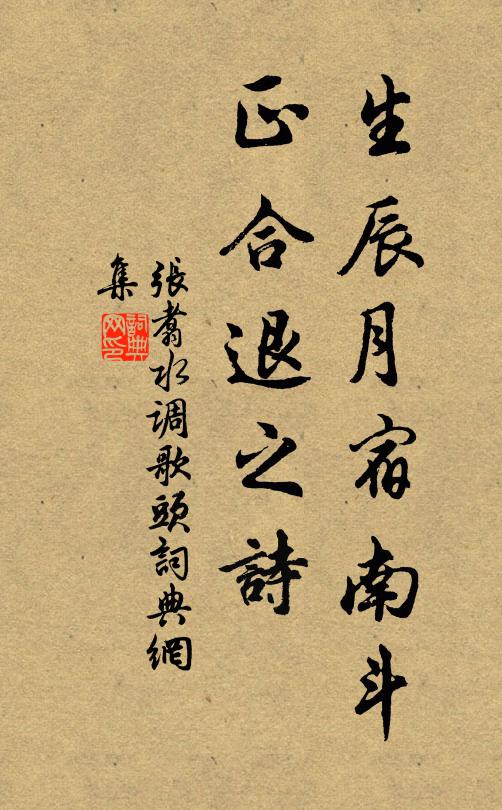 生辰月宿南斗
正合退之詩
張翥水调歌頭詞典網
集
詞典
网印